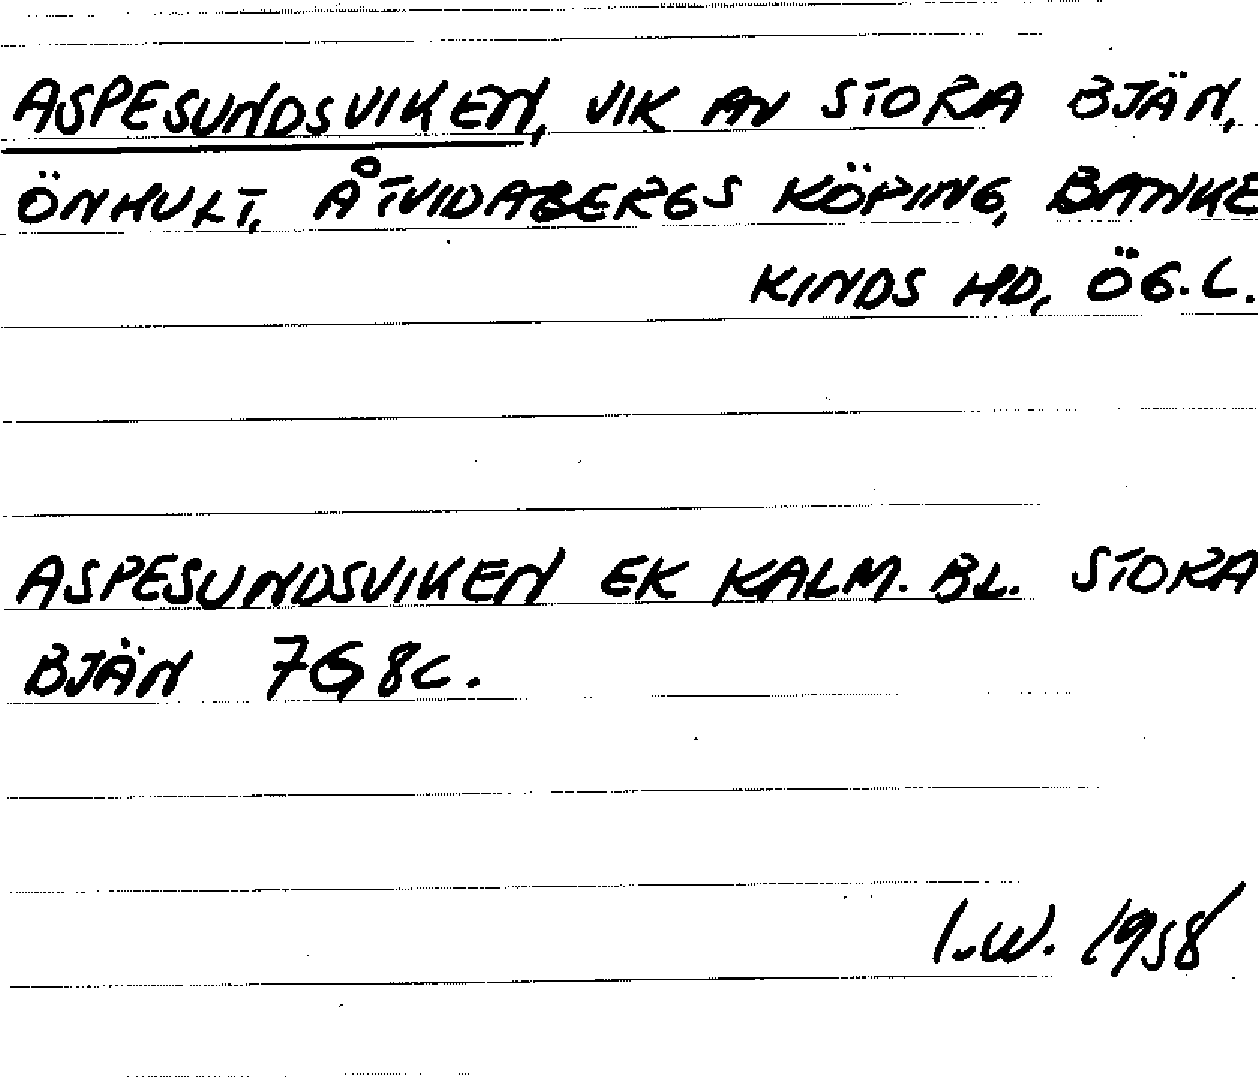 ASPESUNDSVIKEN, VIK AV STORA BJÄN,
ÖNHULT, ÅTVIDABERGS KÖPING, BANKE
KINDS HD, ÖG.L.
ASPESUNDSVIKEN EK KALM. BL. STORA
BJÄN 7G 8c.
I.W. 1958